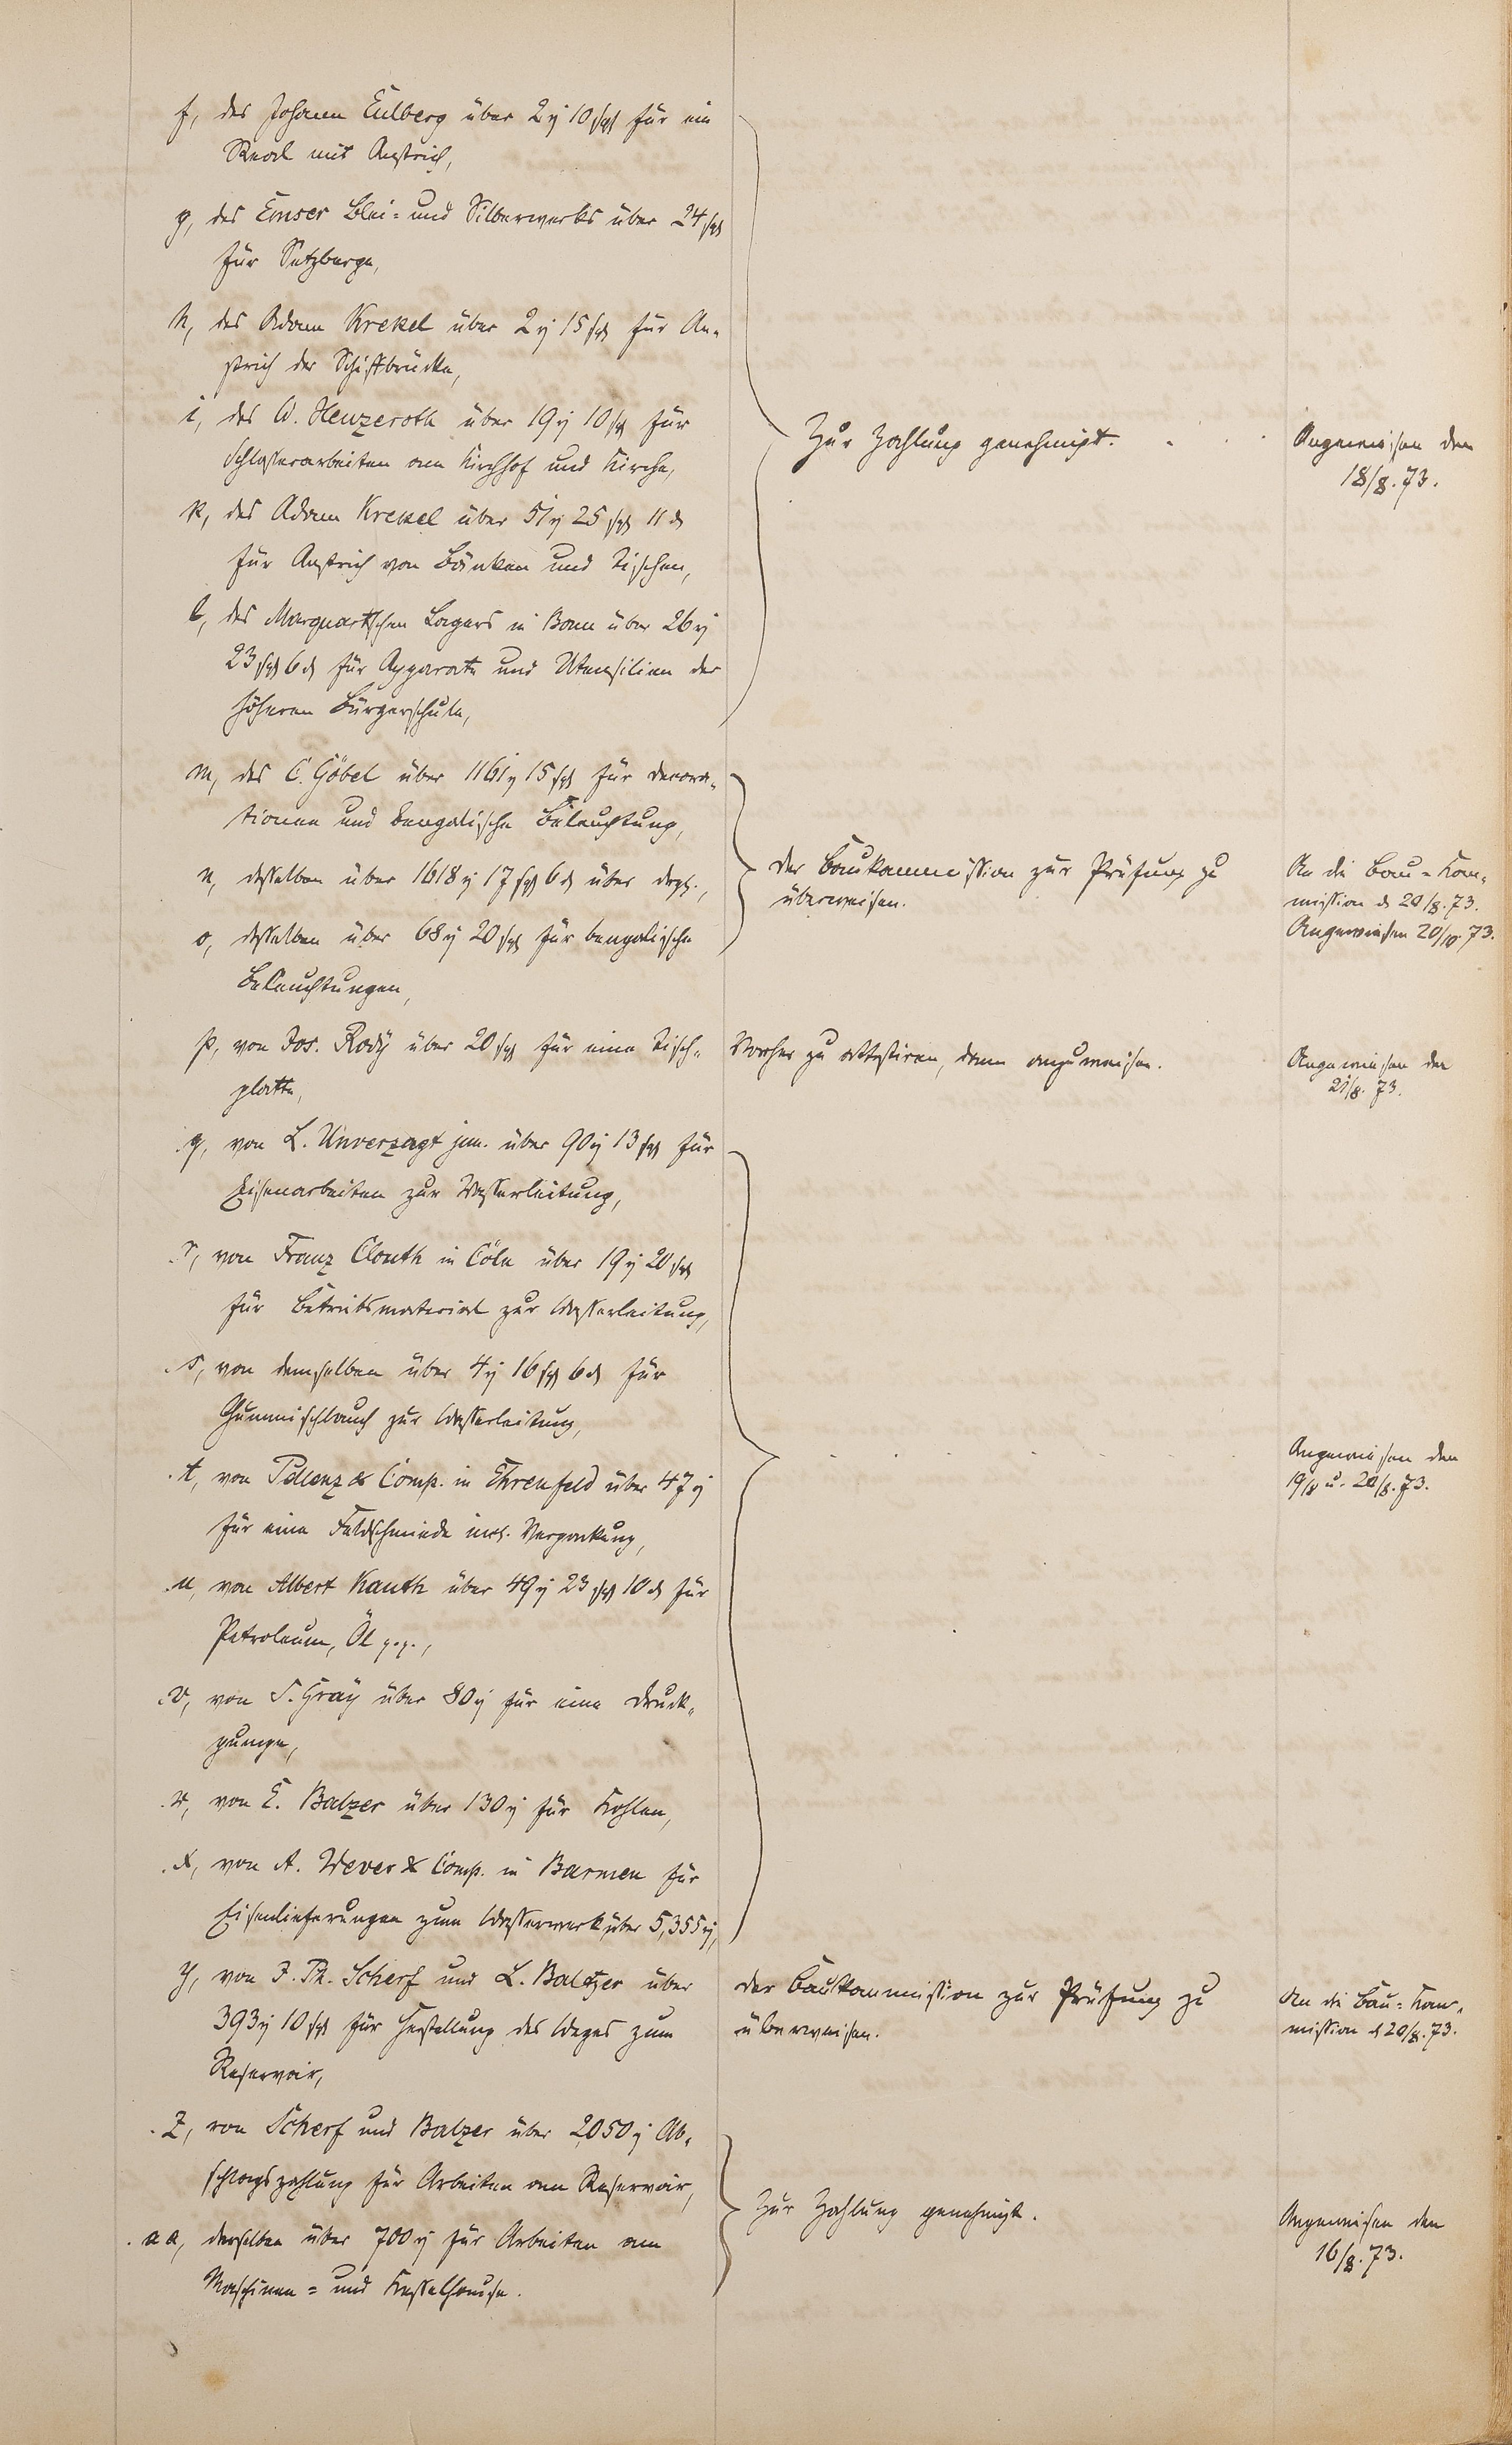 f, des Johann Eulberg über 2 rh 10 sgr für ein
Real mit Anstrich,
g, des Emser Blei- und Silberwerks über 24 sgr
für Setzberge,
h, des Adam Krekel über 2 rh 15 sgr für An-
strich der Schiffbrücke,
i, des W. Henzeroth über 19 rh 10 sgr für
Schlosserarbeiten am Kirchhof und Kirche,
k, des Adam Krekel über 51 rh 25 sgr 11 d
für Anstrich von Bänken und Tischen,
l, des Marquart'schen Lagers in Bonn über 26 rh
23 sgr 6 d für Apparate und Utensilien der
höheren Bürgerschule,
Zur Zahlung genehmigt.
Angewiesen den
18/8. 73.
m, des C. Göbel über 1161 rh 15 sgr für Decora-
tionen und bengalische Beleuchtung,
n, desselben über 1618 rh 17 sgr 6 d über dergl.,
o, desselben über 68 rh 20 sgr für bengalische
Beleuchtungen,
Der Baukommission zur Prüfung zu
überweisen.
An die Bau-Kom-
mission d 20/8. 73.
Angewiesen 20/10 73.
p, von Jos. Rody über 20 sgr für eine Tisch-
platte,
Vorher zu attestiren, dann anzuweisen.
Angewiesen den
21/8. 73.
q, von L. Unverzagt jun. über 90 rh 13 sgr für
Eisenarbeiten zur Wasserleitung,
r, von Franz Clouth in Cöln über 19 rh 20 sgr
für Betriebsmaterial zur Wasserleitung,
s, von demselben über 4 rh 16 sgr 6 d für
Gummischlauch zur Wasserleitung,
t, von Pellenz & Comp. in Ehrenfeld über 47 rh
für eine Feldschmiede incl. Verpackung,
u, von Albert Kauth über 49 rh 23 sgr 10 d für
Petroleum, Öl p.p.,
v, von S. Gray über 80 rh für eine Druck-
pumpe,
w, von E. Balzer über 130 rh für Kohlen,
x, von A. Wever & Comp. in Barmen für
Eisenlieferungen zum Wasserwerk über 5,355 rh,
Angewiesen den
19/8 u. 20/8. 73.
y, von J. Ph. Scherf und L. Baltzer über
393 rh 10 sgr für Herstellung des Weges zum
Reservoir,
Der Baukommission zur Prüfung zu
überweisen.
An die Bau-Kom-
mission d 20/8. 73.
z, von Scherf und Balzer über 2050 rh Ab-
schlagszahlung für Arbeiten am Reservoir,
aa, derselben über 700 rh für Arbeiten am
Maschinen- und Kesselhause.
Zur Zahlung genehmigt.
Angewiesen den
16/8. 73.